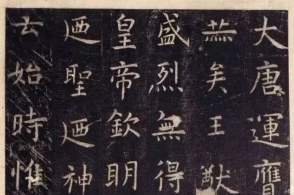 大唐運
矣王猷
盛烈無得
皇帝欽明
迺聖迺神
始時惟